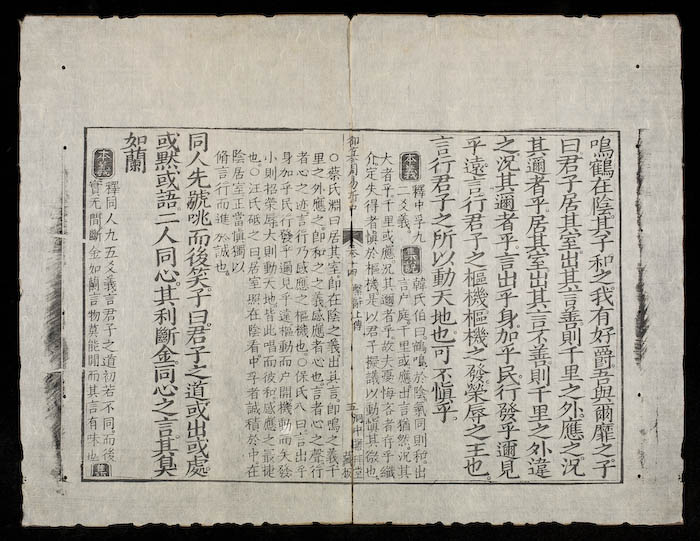 鳴鶴在陰其子和之我有好爵吾與爾靡之子
曰君子居其室出其言善則千里之外應之況
其邇者乎居其室出其言不善則千里之外違
之況其邇者乎言出乎身加乎民行發乎邇見
乎遠言行君子之樞機樞機之發榮辱之主也
言行君子之所以動天地也可不愼乎
本義
釋中孚九
二爻義
集說
韓氏伯曰鶴鳴於陰氣同則和出
言戶庭千里或應出言猶然況其
大者乎千里或應況其邇者乎故夫憂悔吝者存乎纖
介定失得者愼於樞機是以君子擬議以動愼其微也
御纂周易折中 卷十四 繫辭上傳 五
○蔡氏淵曰居其室即在陰之義出其言即鳴之義千
里之外應之即和之之義感應者心也言者心之聲行
者心之迹言行乃感應之樞機也○保氏八曰言出乎
身加乎民行發乎邇見乎遠樞動而戶開機動而矢發
小則招榮辱大則動天地皆此唱而彼和感應之最捷
也○汪氏砥之曰居室照在陰看中孚者誠積於中在
陰居室正當愼獨以
脩言行而進於誠也
同人先號咷而後笑子曰君子之道或出或處
或默或語二人同心其利斷金同心之言其臭
如蘭
本義
釋同人九五爻義言君子之道初若不同而後
實无間斷金如蘭言物莫能間而其言有味也
集